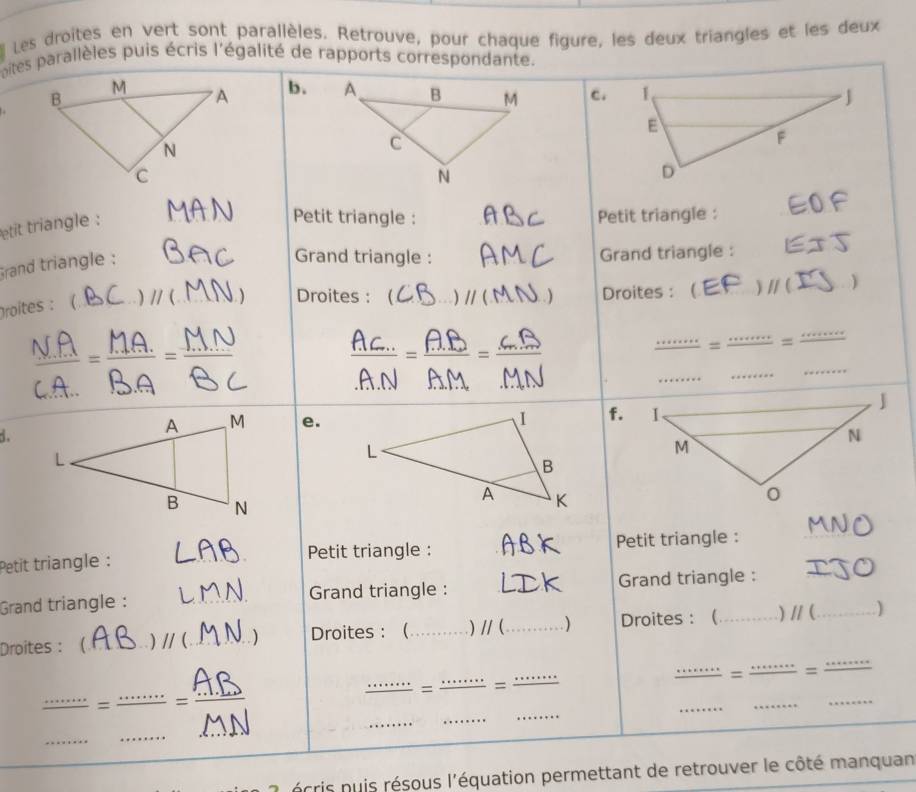 Les droites en vert sont parallèles. Retrouve, pour chaque figure, les deux triangles et les deux
oites parallèles puis écris l'égalité de rapports correspondante.
B M A N C
Petit triangle : MAN
Grand triangle : BAC
Droites : (BC) // (MN)
NA/CA = MA/BA = MN/BC
b. A B M C N
Petit triangle : ABC
Grand triangle : AMC
Droites : (CB) // (MN)
AC/AN = AB/AM = CB/MN
c. I J E F D
Petit triangle : EDF
Grand triangle : EIJ
Droites : (EF) // (IJ)
........ = ........ = ........
d. A M L B N
Petit triangle : LAB
Grand triangle : LMN
Droites : (AB) // (MN)
........ = ........ = AB/MN
e. I L B A K
Petit triangle : ABK
Grand triangle : LIK
Droites : (............) // (............)
........ = ........ = ........
f. I J M N O
Petit triangle : MNO
Grand triangle : IJO
Droites : (............) // (............)
........ = ........ = ........
2, écris puis résous l'équation permettant de retrouver le côté manquan